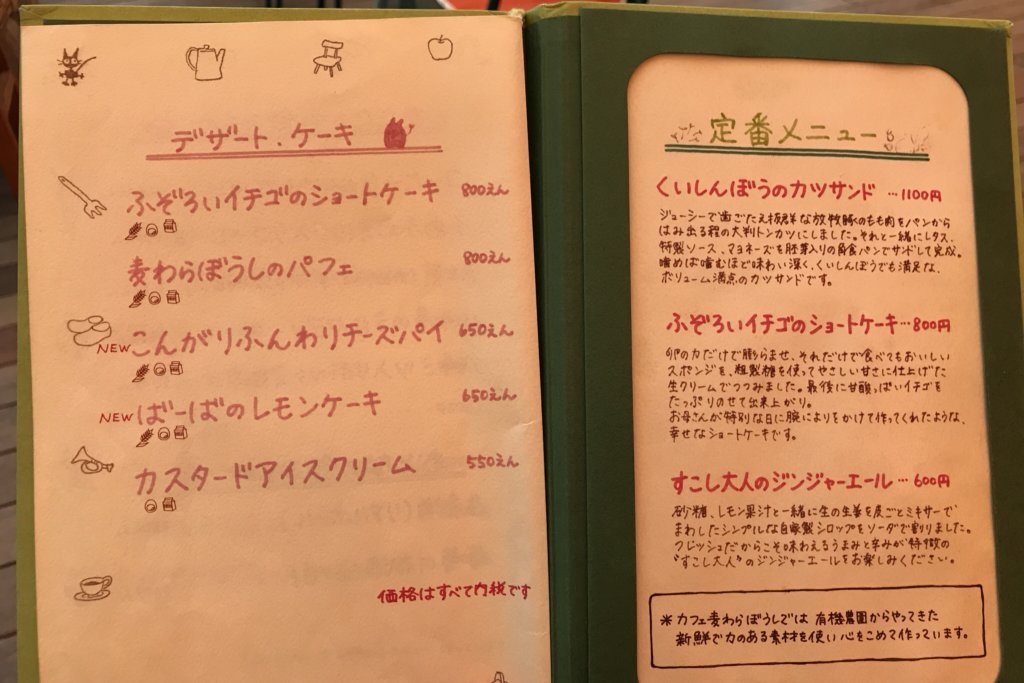 デザート、ケーキ
ふぞろいイチゴのショートケーキ 800えん
麦わらぼうしのパフェ 800えん
NEW こんがりふんわりチーズパイ 650えん
NEW ばーばのレモンケーキ 650えん
カスタードアイスクリーム 550えん
価格はすべて内税です
定番メニュー
くいしんぼうのカツサンド …1100円
ジューシーで歯ごたえ抜群な放牧豚のもも肉をパンから
はみ出る程の大判トンカツにしました。それと一緒にレタス、
特製ソース、マヨネーズを胚芽入りの角食パンでサンドして完成。
噛めば噛むほど味わい深く、くいしんぼうでも満足な、
ボリューム満点のカツサンドです。
ふぞろいイチゴのショートケーキ…800円
卵の力だけで膨らませ、それだけで食べてもおいしい
スポンジを、粗製糖を使ってやさしい甘さに仕上げた
生クリームでつつみました。最後に甘酸っぱいイチゴを
たっぷりのせて出来上がり。
お母さんが特別な日に腕によりをかけて作ってくれたような、
幸せなショートケーキです。
すこし大人のジンジャーエール … 600円
砂糖、レモン果汁と一緒に生の生姜を皮ごとミキサーで
まわしたシンプルな自家製シロップをソーダで割りました。
フレッシュだからこそ味わえるうまみと辛みが特徴の
"すこし大人"のジンジャーエールをお楽しみください。
＊カフェ麦わらぼうしでは 有機農園からやってきた
新鮮で力のある素材を使い 心をこめて作っています。